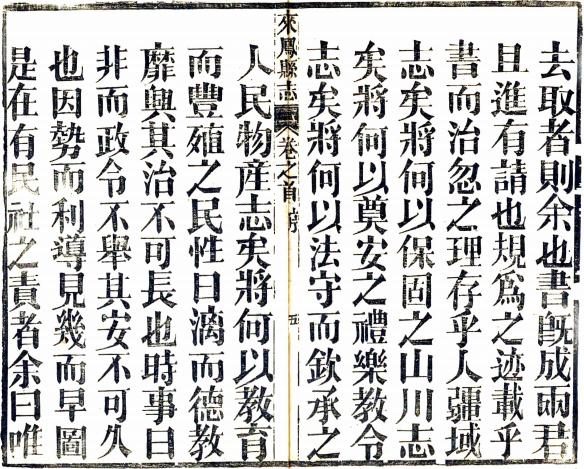 去取者則余也書旣成兩君
且進有請也規爲之迹載乎
書而治忽之理存乎人疆域
志矣將何以保固之山川志
矣將何以奠安之禮樂教令
志矣將何以法守而欽承之
來鳳縣志 卷之首 序 五
人民物産志矣將何以教育
而豐殖之民性日漓而德教
靡興其治不可長也時事日
非而政令不舉其安不可久
也因勢而利導見幾而早圖
是在有民社之責者余曰唯